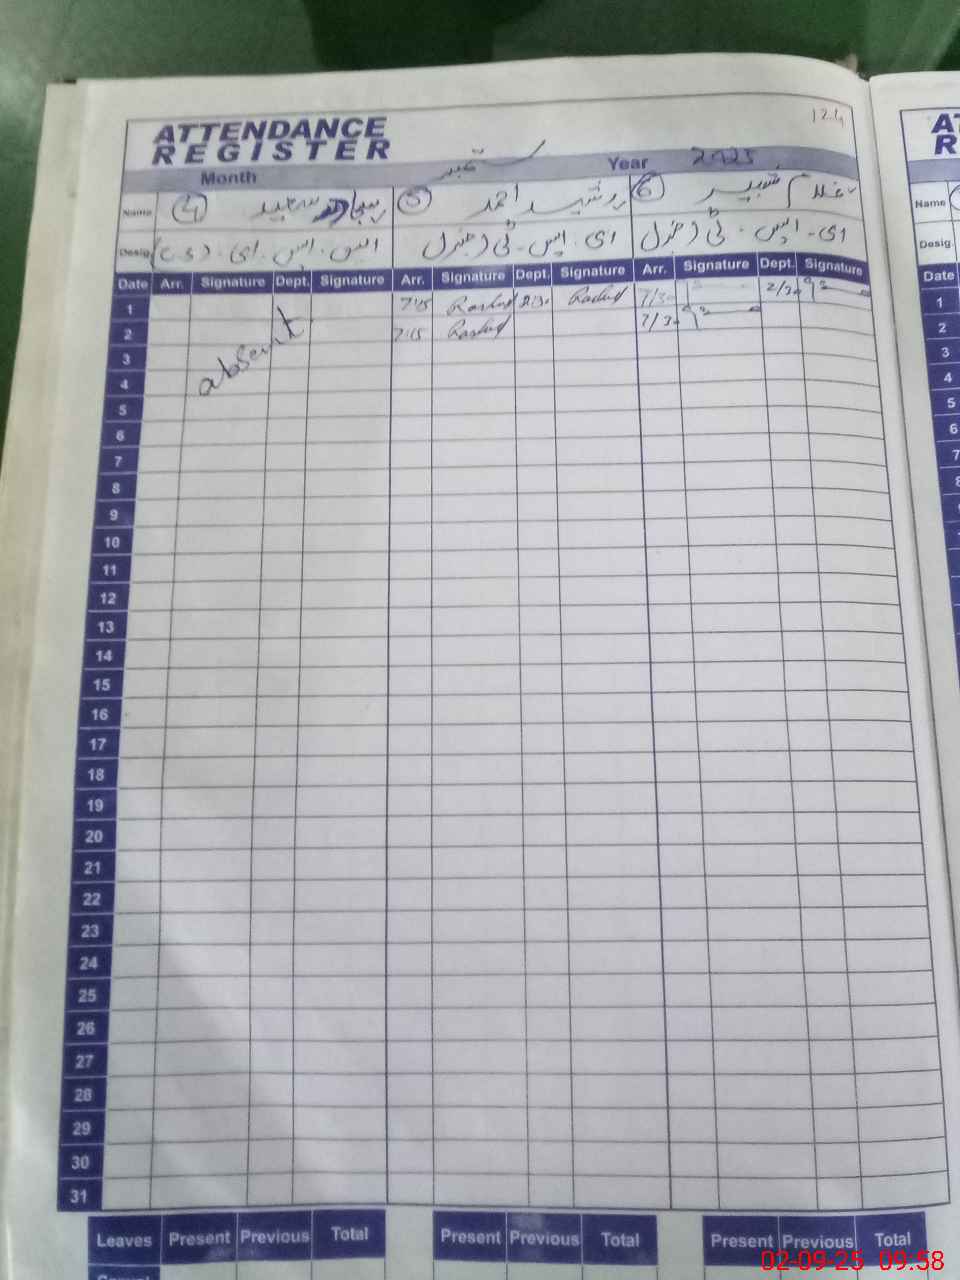 124
ATTENDANCE
REGISTER
Month ستمبر Year 2025
Name 4 سعید 5 رشید احمد 6 غلام شبیر
Desig. ایس۔ایس۔ای۔(c.s) ای۔ایس۔ٹی (جنرل) ای۔ایس۔ٹی (جنرل)
Date Arr. Signature Dept. Signature Arr. Signature Dept. Signature Arr. Signature Dept. Signature
1 7:15 Rashid 2:30 Rashid 7/30 2/30
2 absent 7:15 Rashid 7/30
3
4
5
6
7
8
9
10
11
12
13
14
15
16
17
18
19
20
21
22
23
24
25
26
27
28
29
30
31
Leaves Present Previous Total Present Previous Total Present Previous Total
Name
Desig.
Date
1
2
3
4
5
6
7
8
02-09-25 09:58